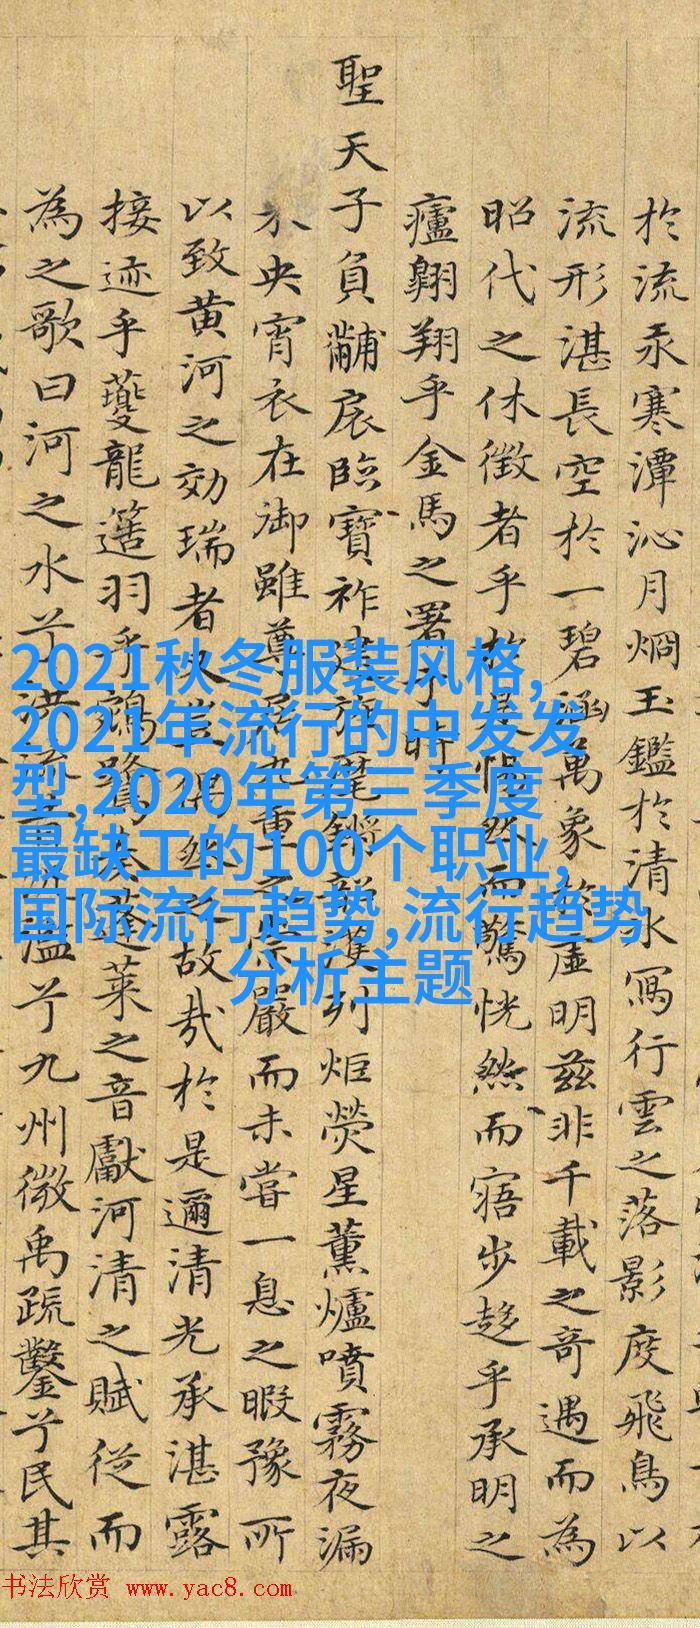 於流汞寒潭沁月烱玉鑑於清水寫行雲之落影度飛鳥以
流形湛長空於一碧涵萬象於虛明茲非千載之奇遇而為
昭代之休徵者乎於是惕然而驚恍然而寤步趍乎承明之
廬翱翔乎金馬之署于時
聖
天
子負黼扆臨寶祚建旂麾鏘韶濩列炬熒星薰爐噴霧夜漏
未央宵衣在御雖尊居九重之崇嚴而未嘗一息之暇豫所
以致黄河之効瑞者夂豈偶然之故哉於是邇清光承湛露
接迹乎夔龍簉羽乎鵷鷺奏蓬萊之音獻河清之賦從而
為之歌曰河之水兮洪流溢兮九州微禹疏鑿兮民其
2021秋冬服装风格,
2021年流行的中发发
型,2020年第三季度
最缺工的100个职业,
国际流行趋势,流行趋势
分析主题
书法欣赏 www.yac8.com